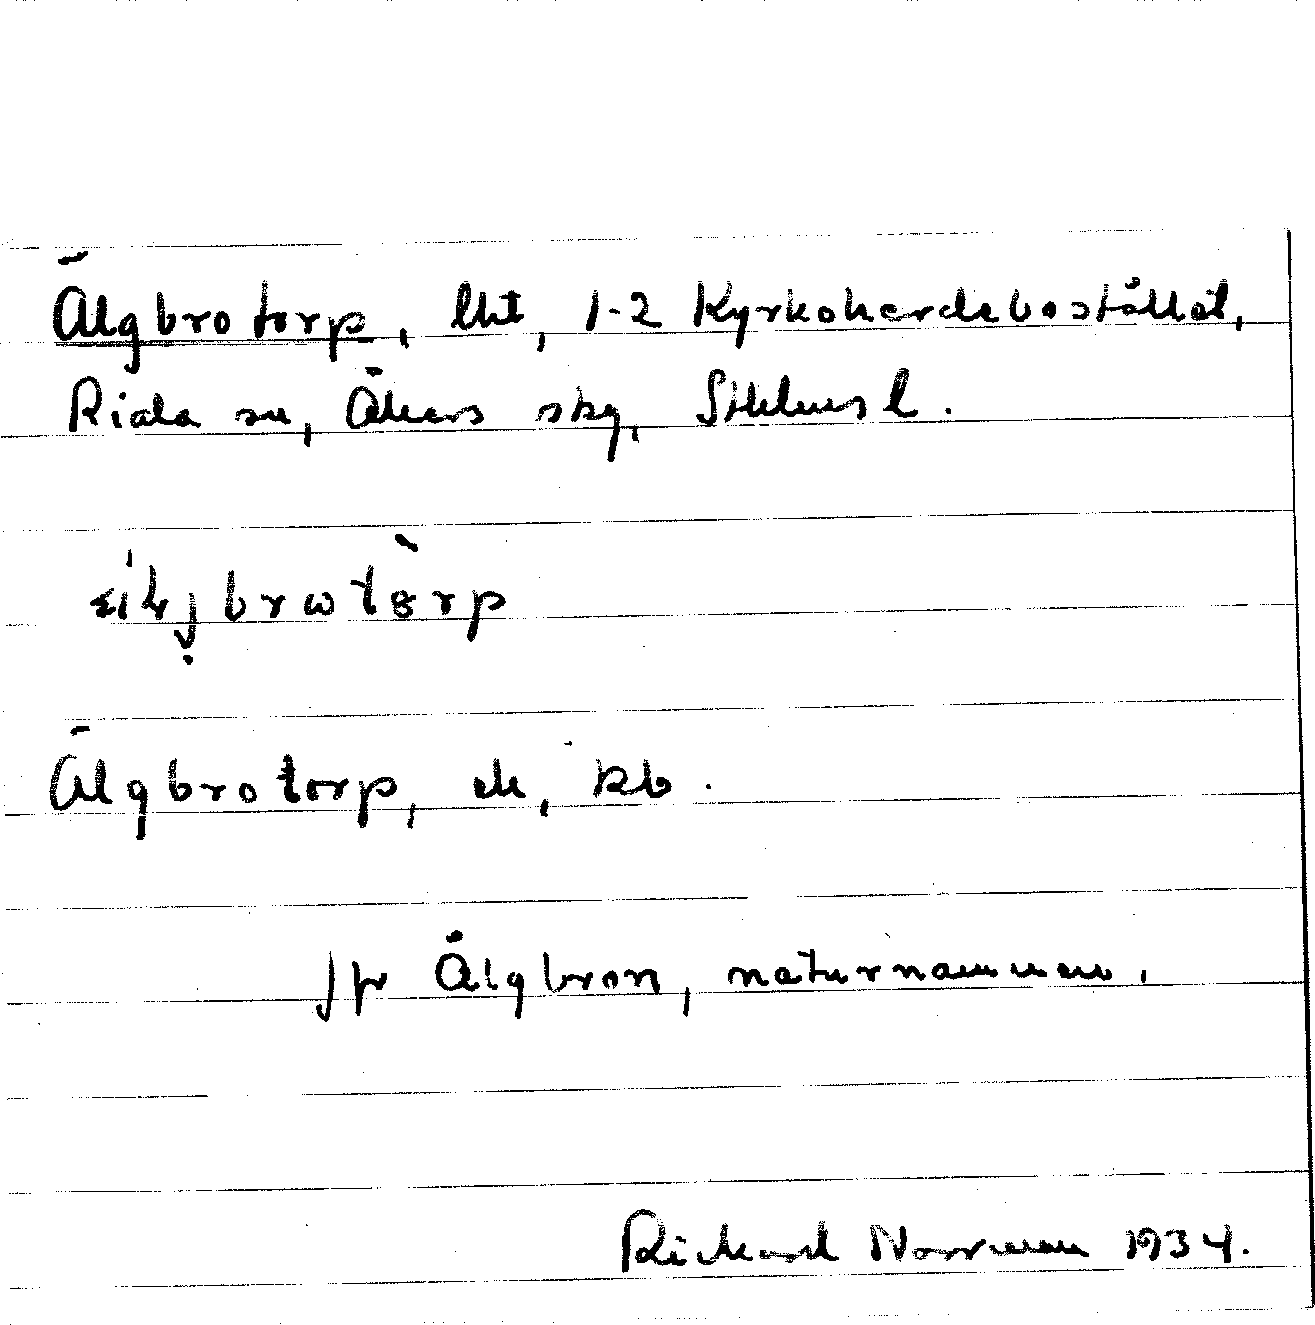 Älgbrotorp, lht, 1-2 Kyrkoherdebostället,
Riala sn, Åkers skg, Sthlms l.
Älgbrotorp, ek, kb.
Jfr Älgbron, naturnamnen.
Rickard Norrman 1934.